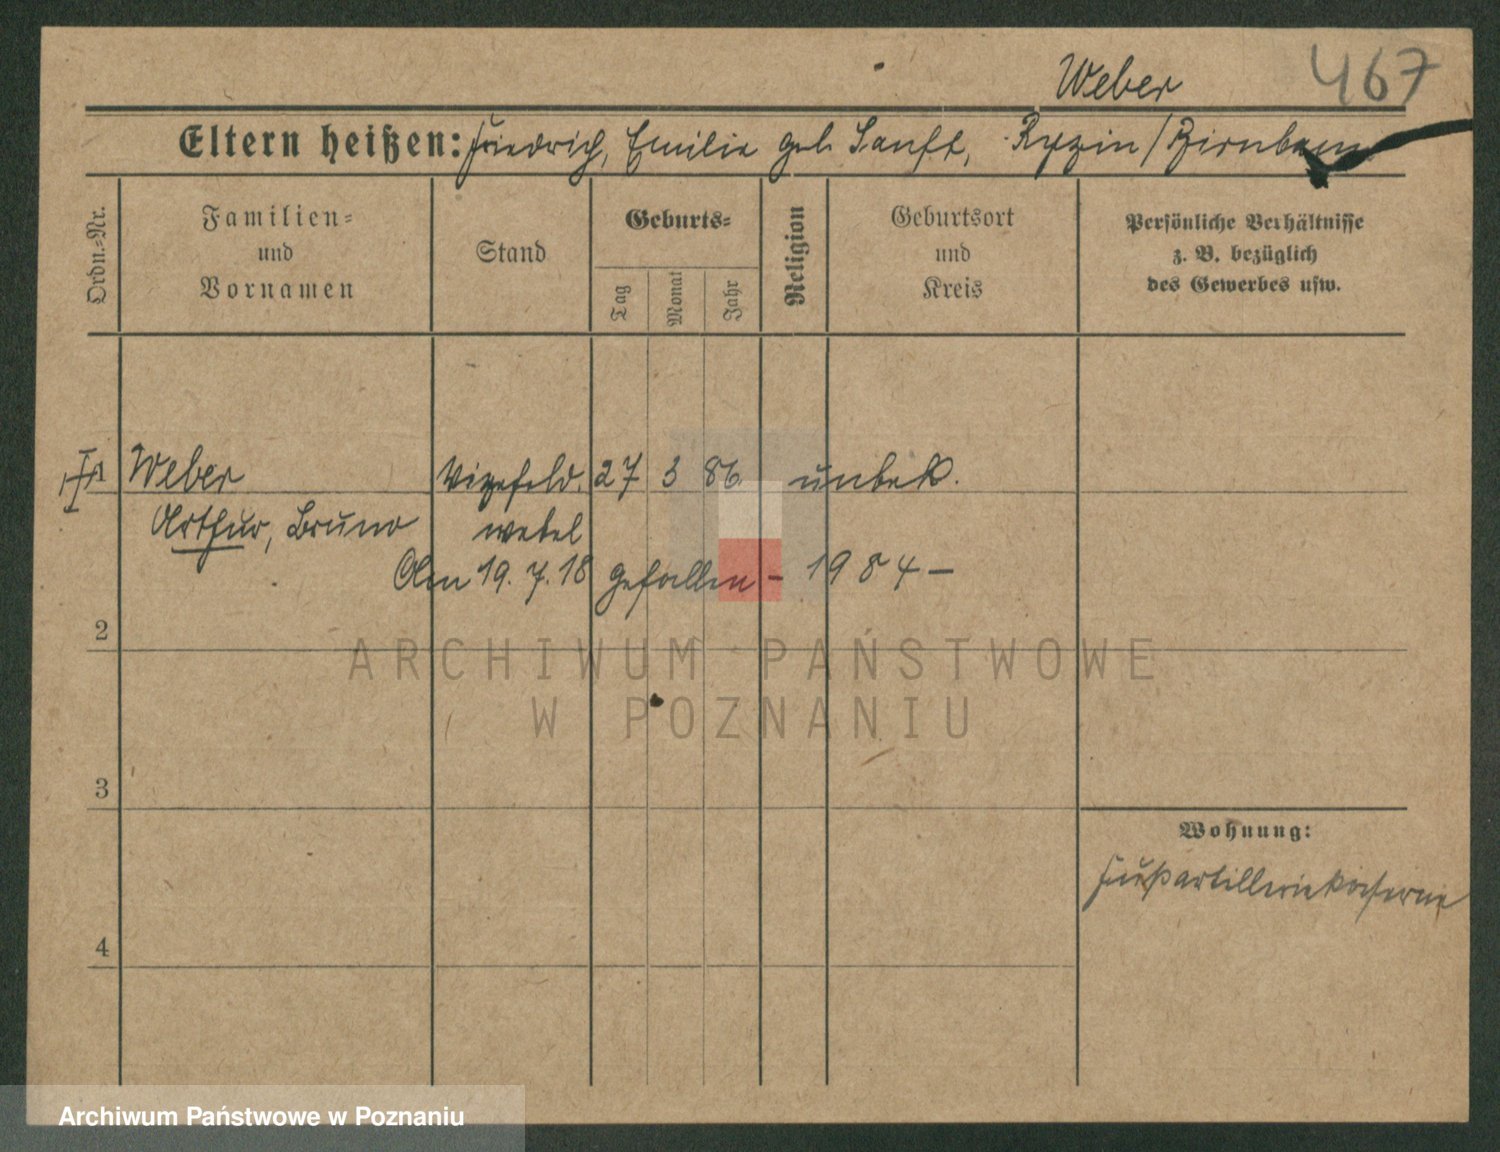 Weber
467
Eltern heißen: Friedrich, Emilie geb. Sanft, Ryzin / Birnbaum
Ordn.-Nr.
Familien- und Vornamen
Stand
Geburts-
Tag
Monat
Jahr
Religion
Geburtsort und Kreis
Persönliche Verhältnisse z. B. bezüglich des Gewerbes usw.
1 Weber Vizefeld. 27 3 86. unbek.
Arthur, Bruno webel
Am 19. 7. 18 gefallen - 1984 -
2
ARCHIWUM PAŃSTWOWE
W POZNANIU
3
Wohnung:
Fußartilleriekaserne
4
Archiwum Państwowe w Poznaniu